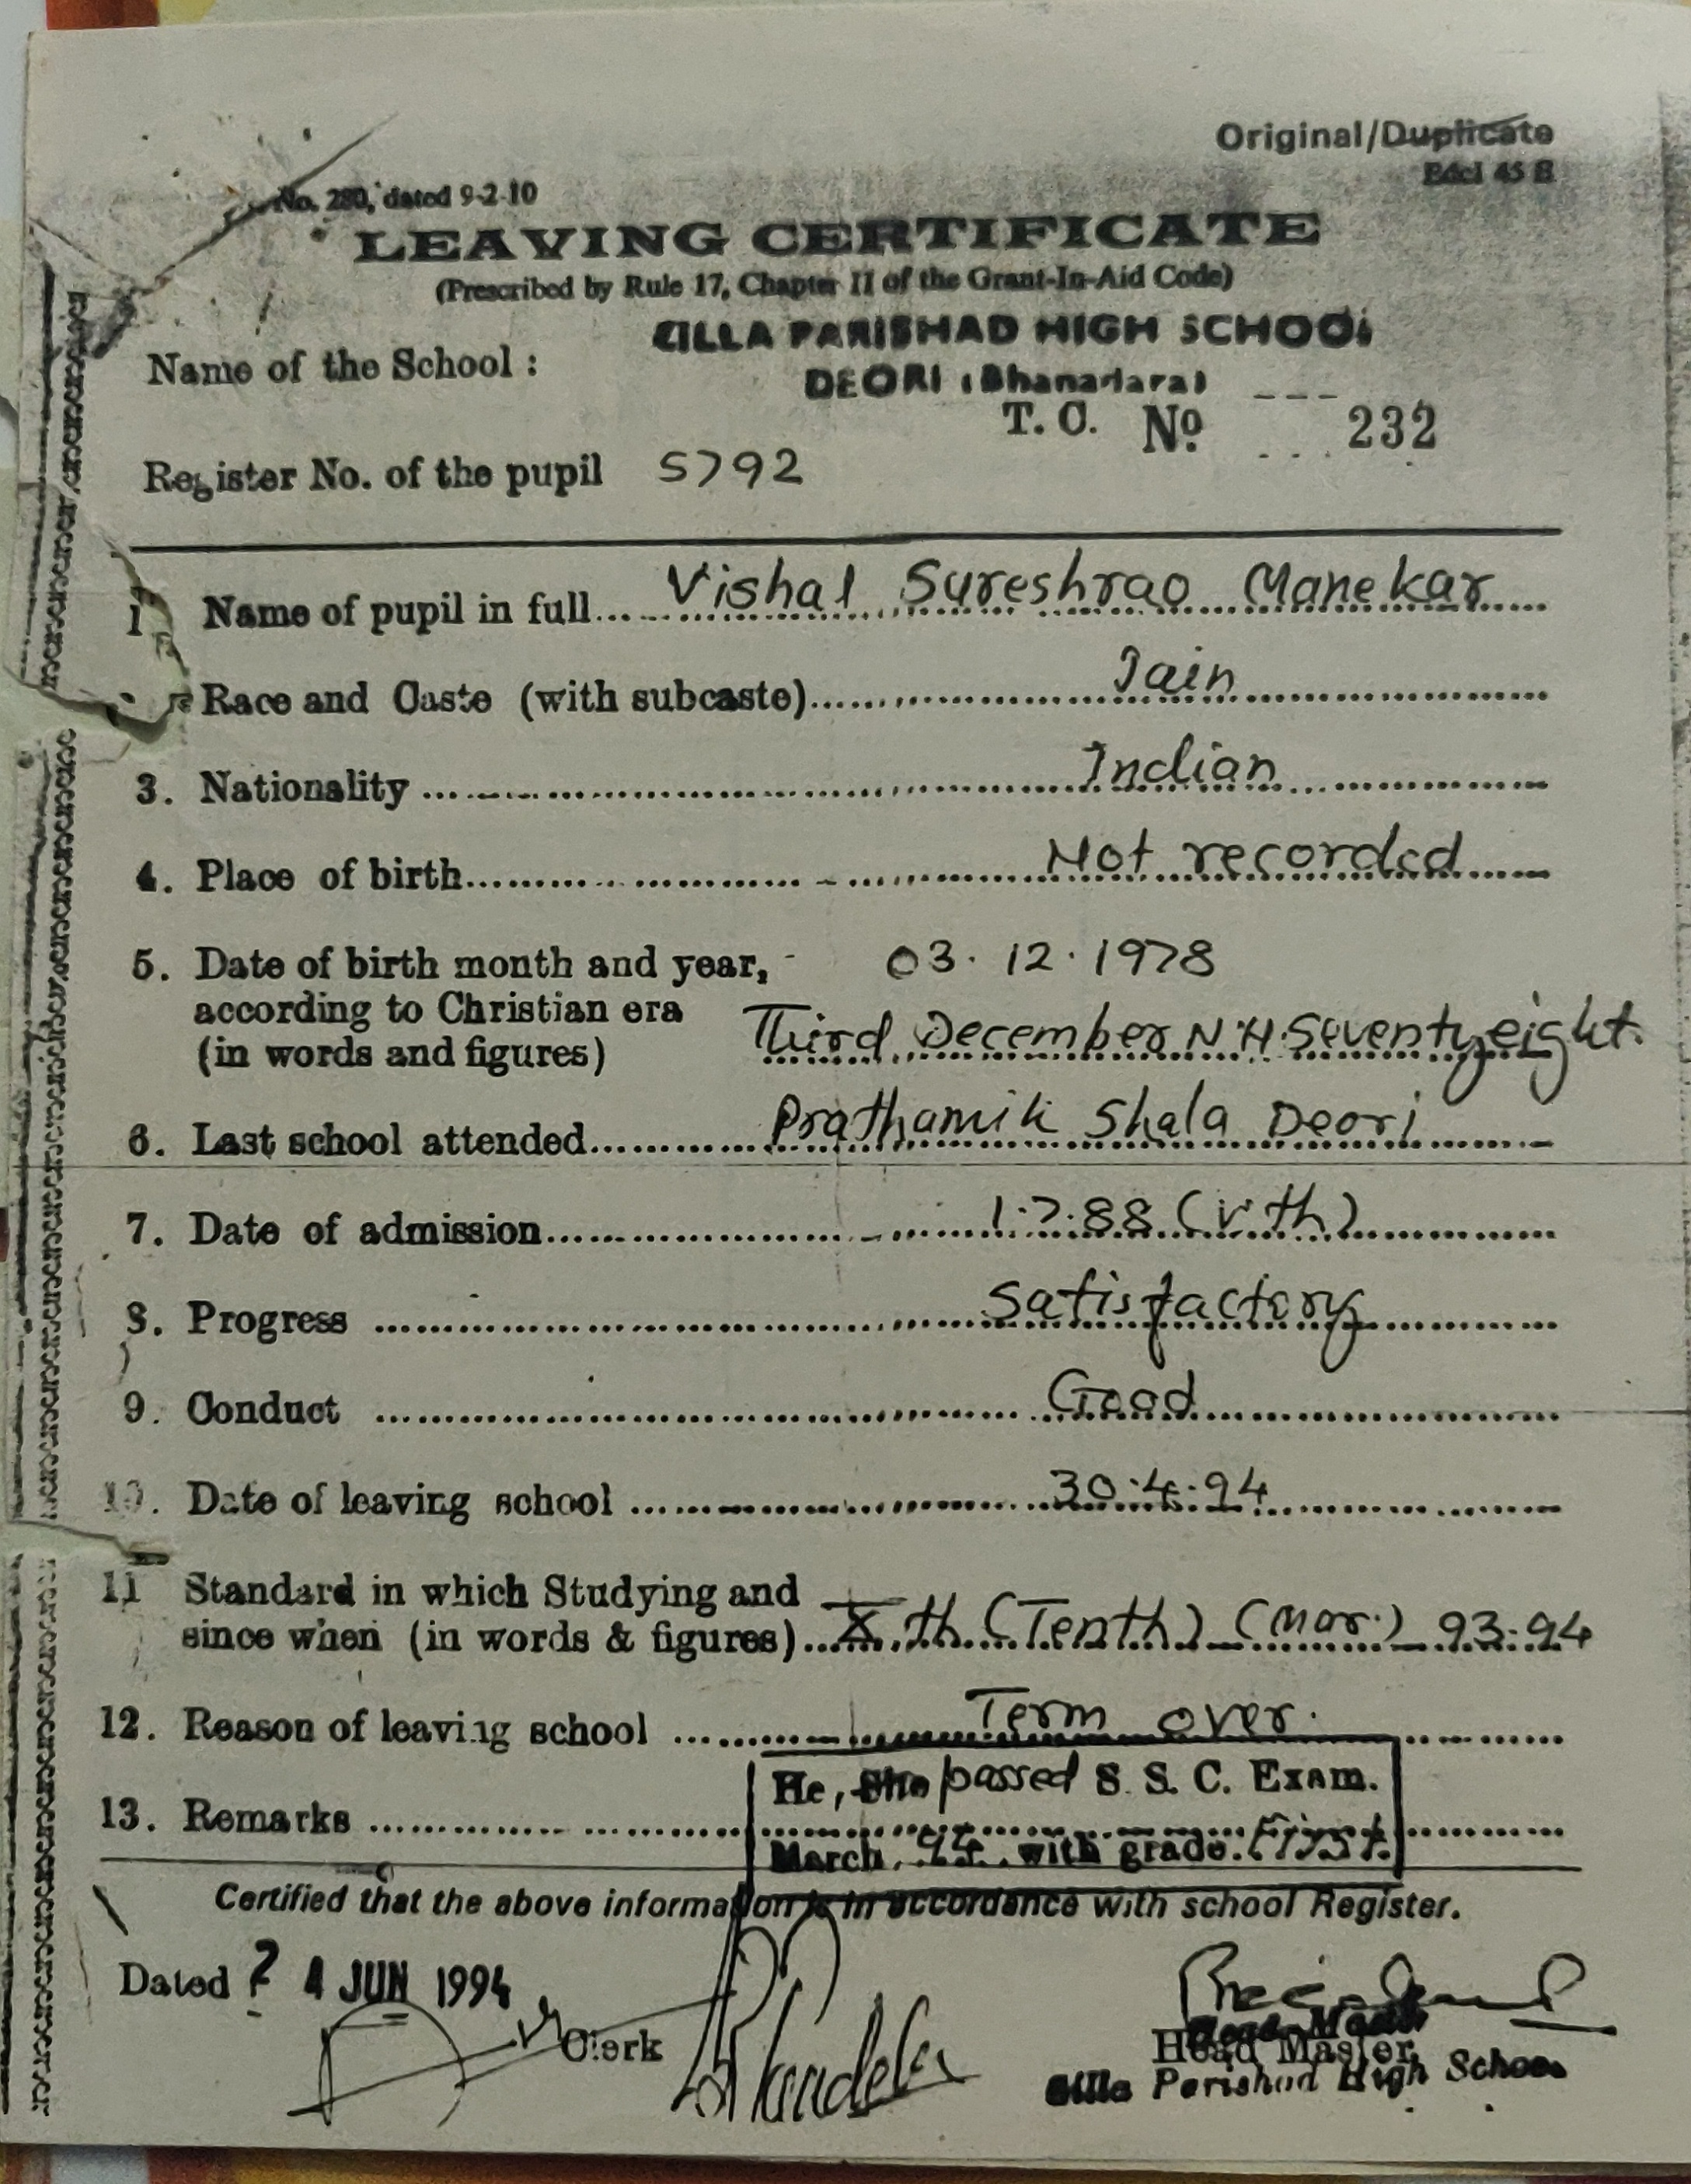 Original/Duplicate
Edcl 45 E
No. 280, dated 9-2-10
LEAVING CERTIFICATE
(Prescribed by Rule 17, Chapter II of the Grant-In-Aid Code)
Name of the School : ZILLA PARISHAD HIGH SCHOOL
DEORI (Bhandara)
T. C. No 232
Register No. of the pupil 5792
1 Name of pupil in full Vishal Sureshrao Manekar
Race and Caste (with subcaste) Jain
3. Nationality Indian
4. Place of birth Not recorded
5. Date of birth month and year, 03.12.1978
according to Christian era
(in words and figures) Third December N.H. Seventyeight
6. Last school attended Prathamik Shala Deori
7. Date of admission 1.7.88 (V.th)
8. Progress Satisfactory
9. Conduct Good
10. Date of leaving school 30.4.94
11 Standard in which Studying and
since when (in words & figures) X th (Tenth) (Mar.) 93-94
12. Reason of leaving school Term over.
He, She passed S. S. C. Exam.
13. Remarks
March 94 with grade. First.
Certified that the above information is in accordance with school Register.
Dated 2 4 JUN 1994
Clerk
Head Master
Zilla Parishad High School